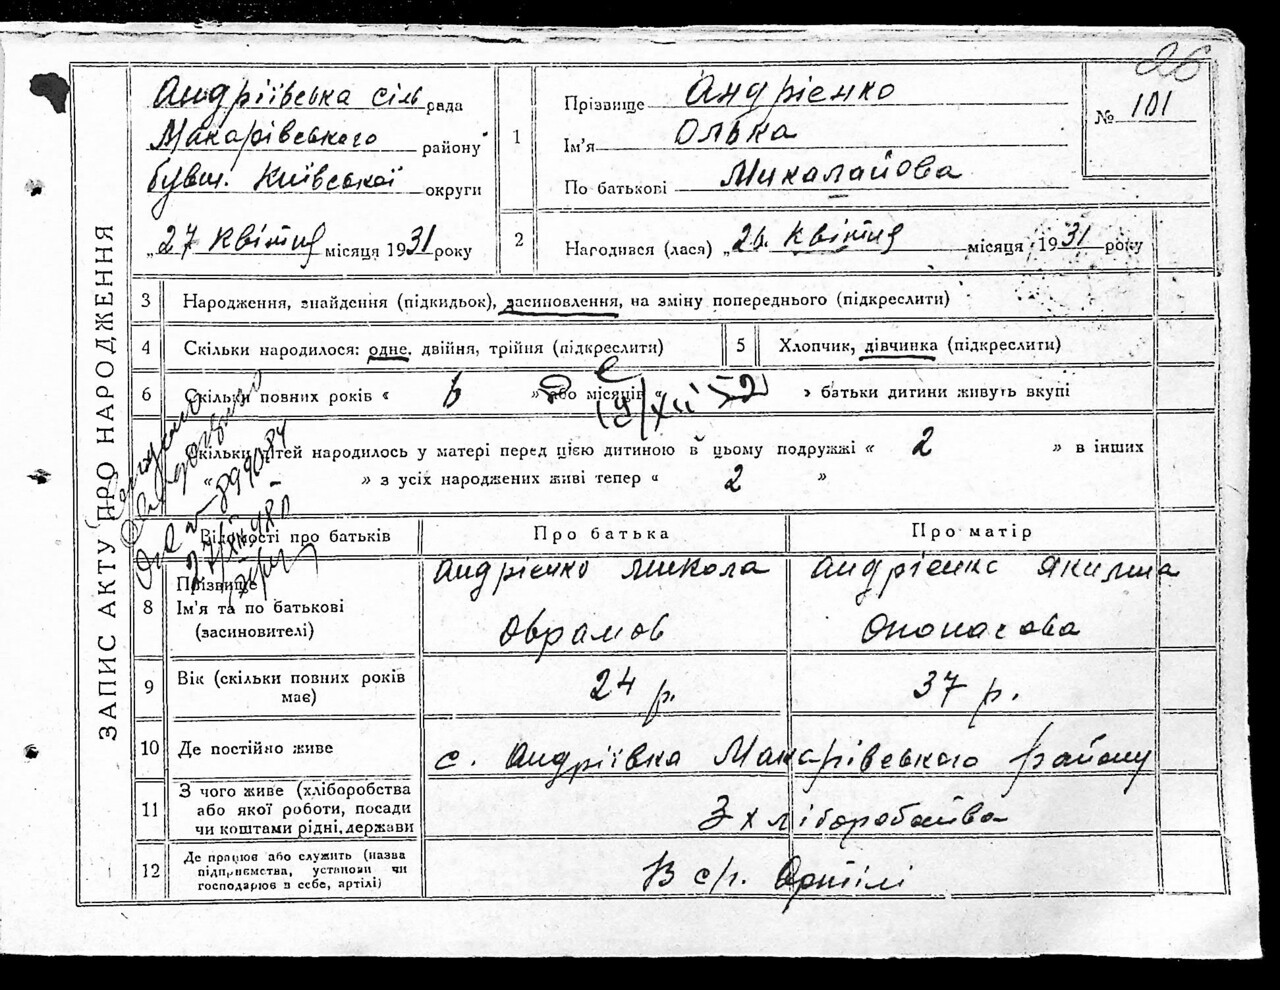 26
ЗАПИС АКТУ ПРО НАРОДЖЕННЯ
Андріївська сіль рада
Макарівського району
бувш. Київської округи
„27 Квітня місяця 1931 року
1
Прізвище Андрієнко
Ім'я Олька
По батькові Микалайова
№ 101
2
Нагодився (лася) „26. Квітня місяця 1931 року
3 Народження, знайдення (підкидьок), засиновлення, на зміну попереднього (підкреслити)
4 Скільки народилося: одне, двійня, трійня (підкреслити)
5 Хлопчик, дівчинка (підкреслити)
6 Скільки повних років « 6 » або місяців « » батьки дитини живуть вкупі
Скільки дітей народилось у матері перед цією дитиною в цьому подружжі « 2 » в інших
« » з усіх народжених живі тепер « 2 »
Відомості про батьків
Про батька
Про матір
8 Прізвище
Ім'я та по батькові
(засиновителі)
Андрієнко Микола
Оврамов
Андрієнко Якилина
Опонасова
9 Вік (скільки повних років
має)
24 р.
37 р.
10 Де постійно живе
с. Андріївка Макарівського району
11 З чого живе (хліборобства
або якої роботи, посади
чи коштами рідні, держави
З хліборобства
12 Де працює або служить (назва
підприємства, установи чи
господарює в себе, артілі)
В с/г. Артілі